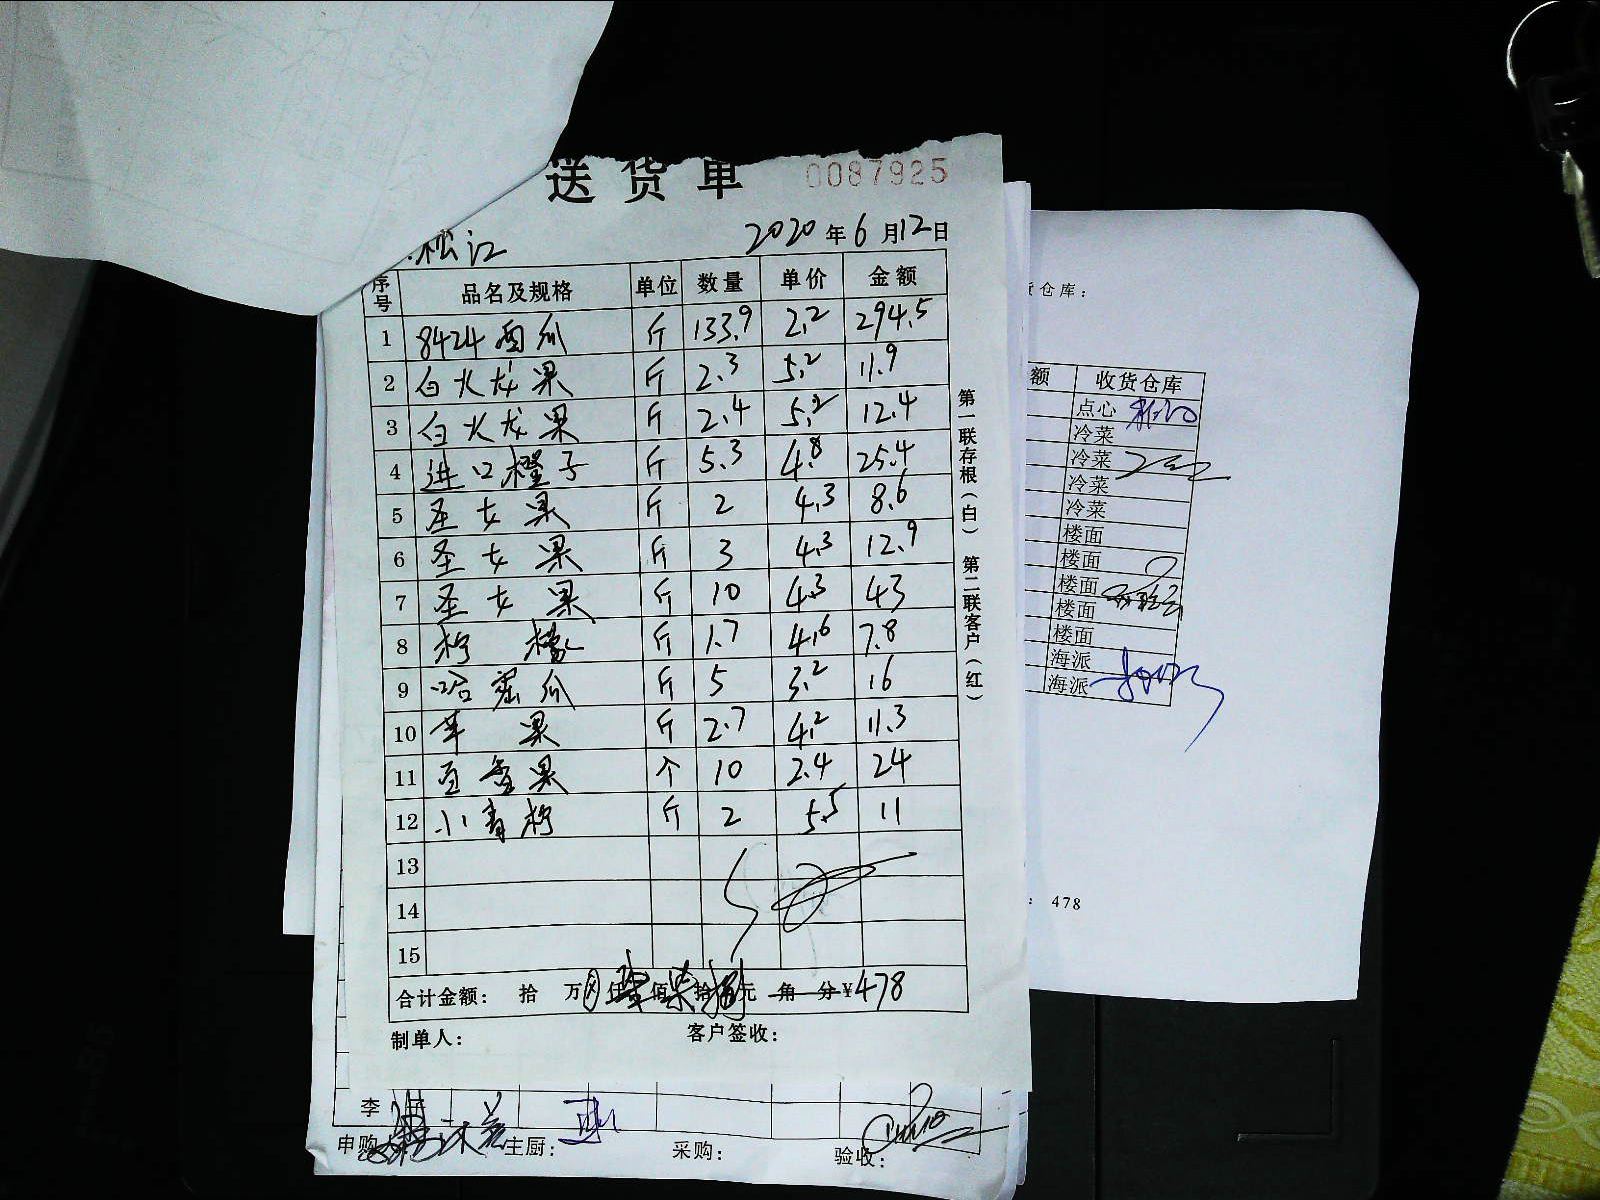 送货单 0087925
松江 2020年6月12日
序号 品名及规格 单位 数量 单价 金额
1 8424西瓜 斤 133.9 2.2 294.5
2 白火龙果 斤 2.3 5.2 11.9
3 白火龙果 斤 2.4 5.2 12.4
4 进口橙子 斤 5.3 4.8 25.4
5 圣女果 斤 2 4.3 8.6
6 圣女果 斤 3 4.3 12.9
7 圣女果 斤 10 4.3 43
8 柠檬 斤 1.7 4.6 7.8
9 哈密瓜 斤 5 3.2 16
10 苹果 斤 2.7 4.2 11.3
11 百香果 个 10 2.4 24
12 小青柠 斤 2 5.5 11
13
14
15
合计金额: 拾 万 仟肆佰柒拾捌元 角 分¥478
制单人: 客户签收:
第一联存根(白) 第二联客户(红)
货仓库:
额 收货仓库
点心
冷菜
冷菜
冷菜
冷菜
楼面
楼面
楼面
楼面
楼面
海派
海派
: 478
李
申购 主厨: 采购: 验收: